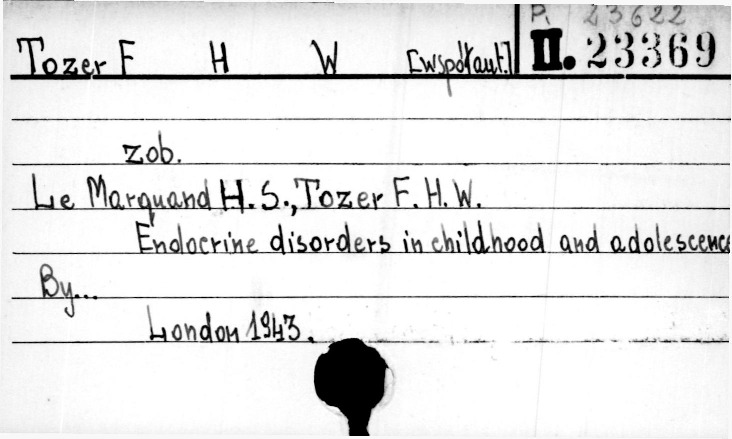 P. 23622
Tozer F H W [współaut.] II. 23369
zob.
Le Marquand H. S., Tozer F. H. W.
Endocrine disorders in childhood and adolescence
By...
London 1943.